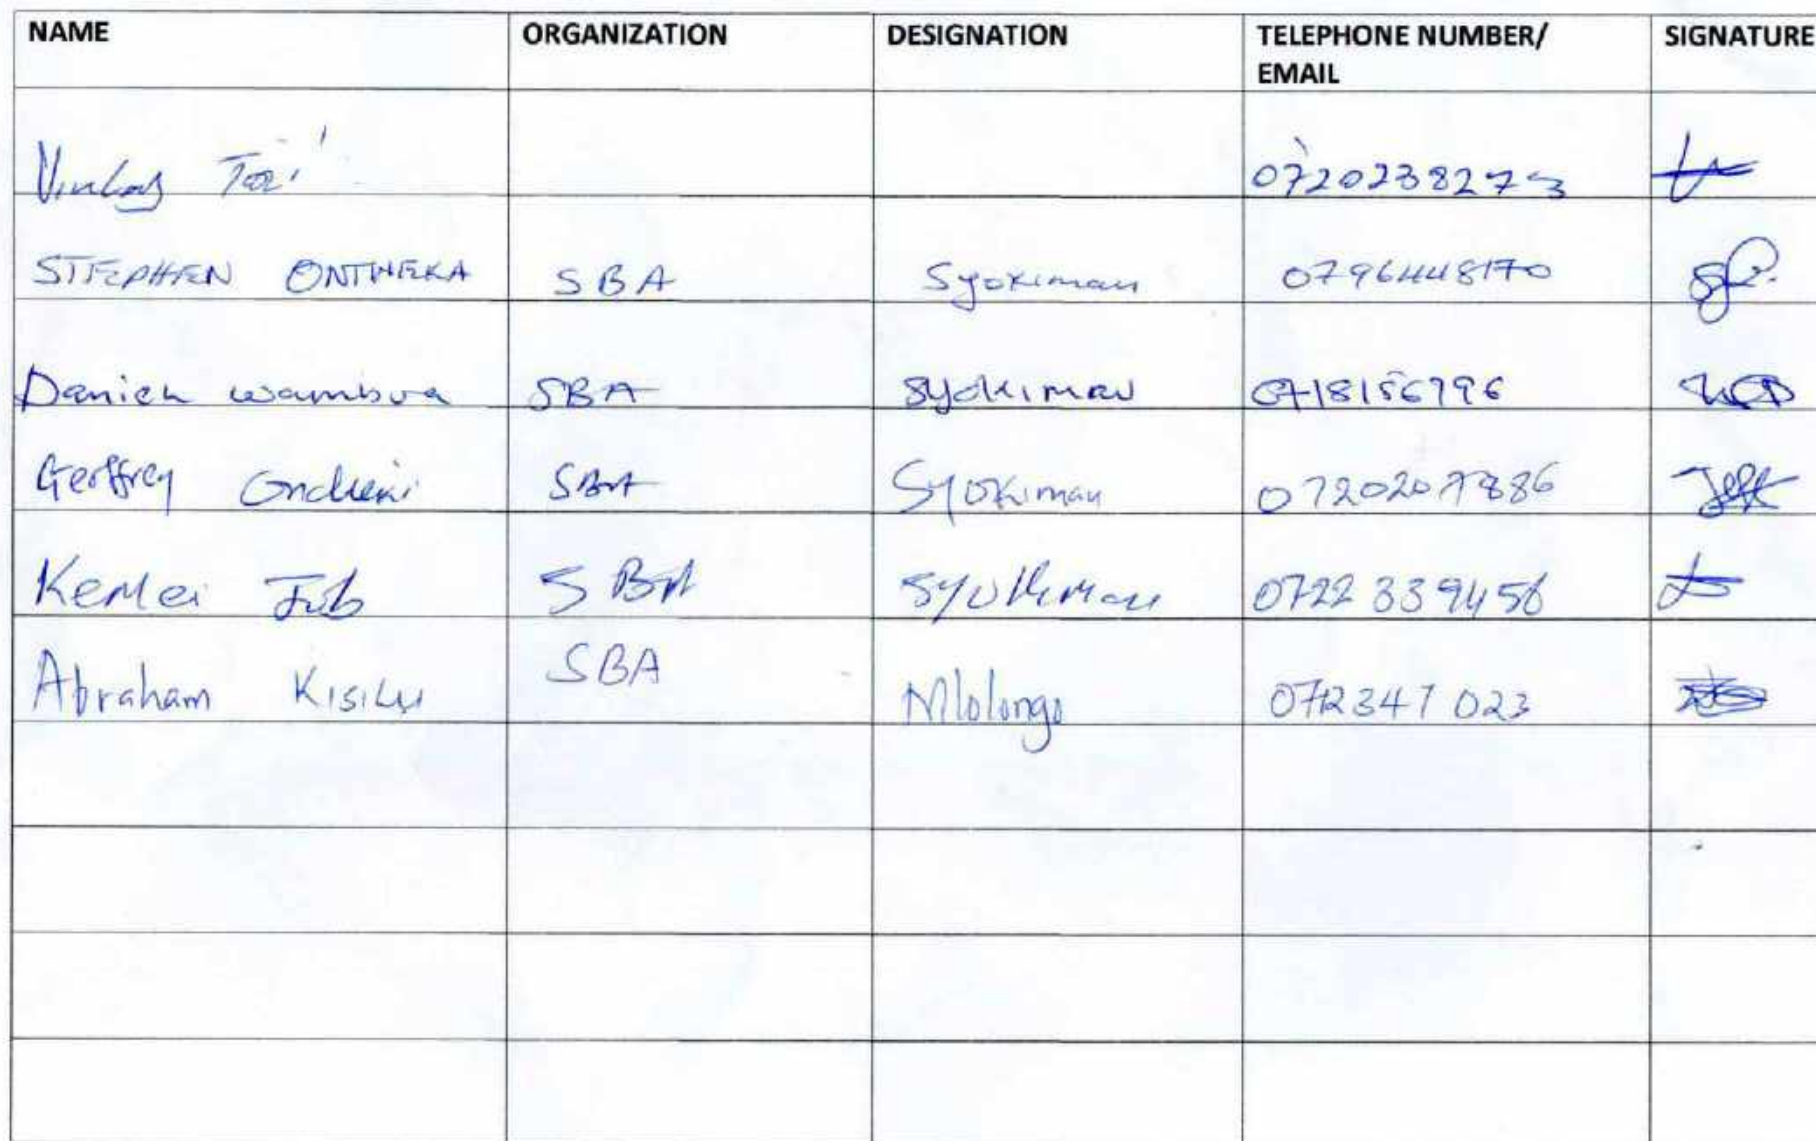 NAME ORGANIZATION DESIGNATION TELEPHONE NUMBER/ SIGNATURE
EMAIL
0720238273
STEPHEN SBA Syokimau 0796448170
Daniel wambua SBA Syokimau 0718156796
Geoffrey SBA Syokimau
Kemei Job SBA Syokimau 0722 339456
Abraham KISILU SBA Mlolongo 072347 023